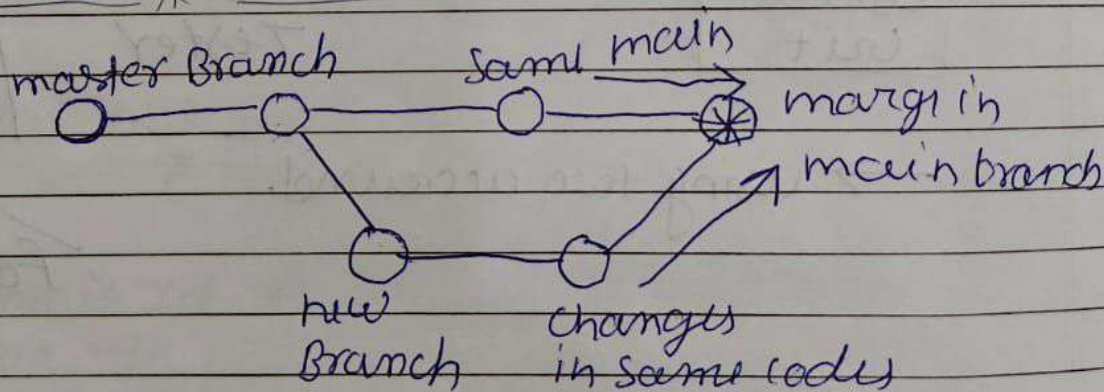 master Branch
same main
margi in
main branch
new
Branch
changes
in same codes